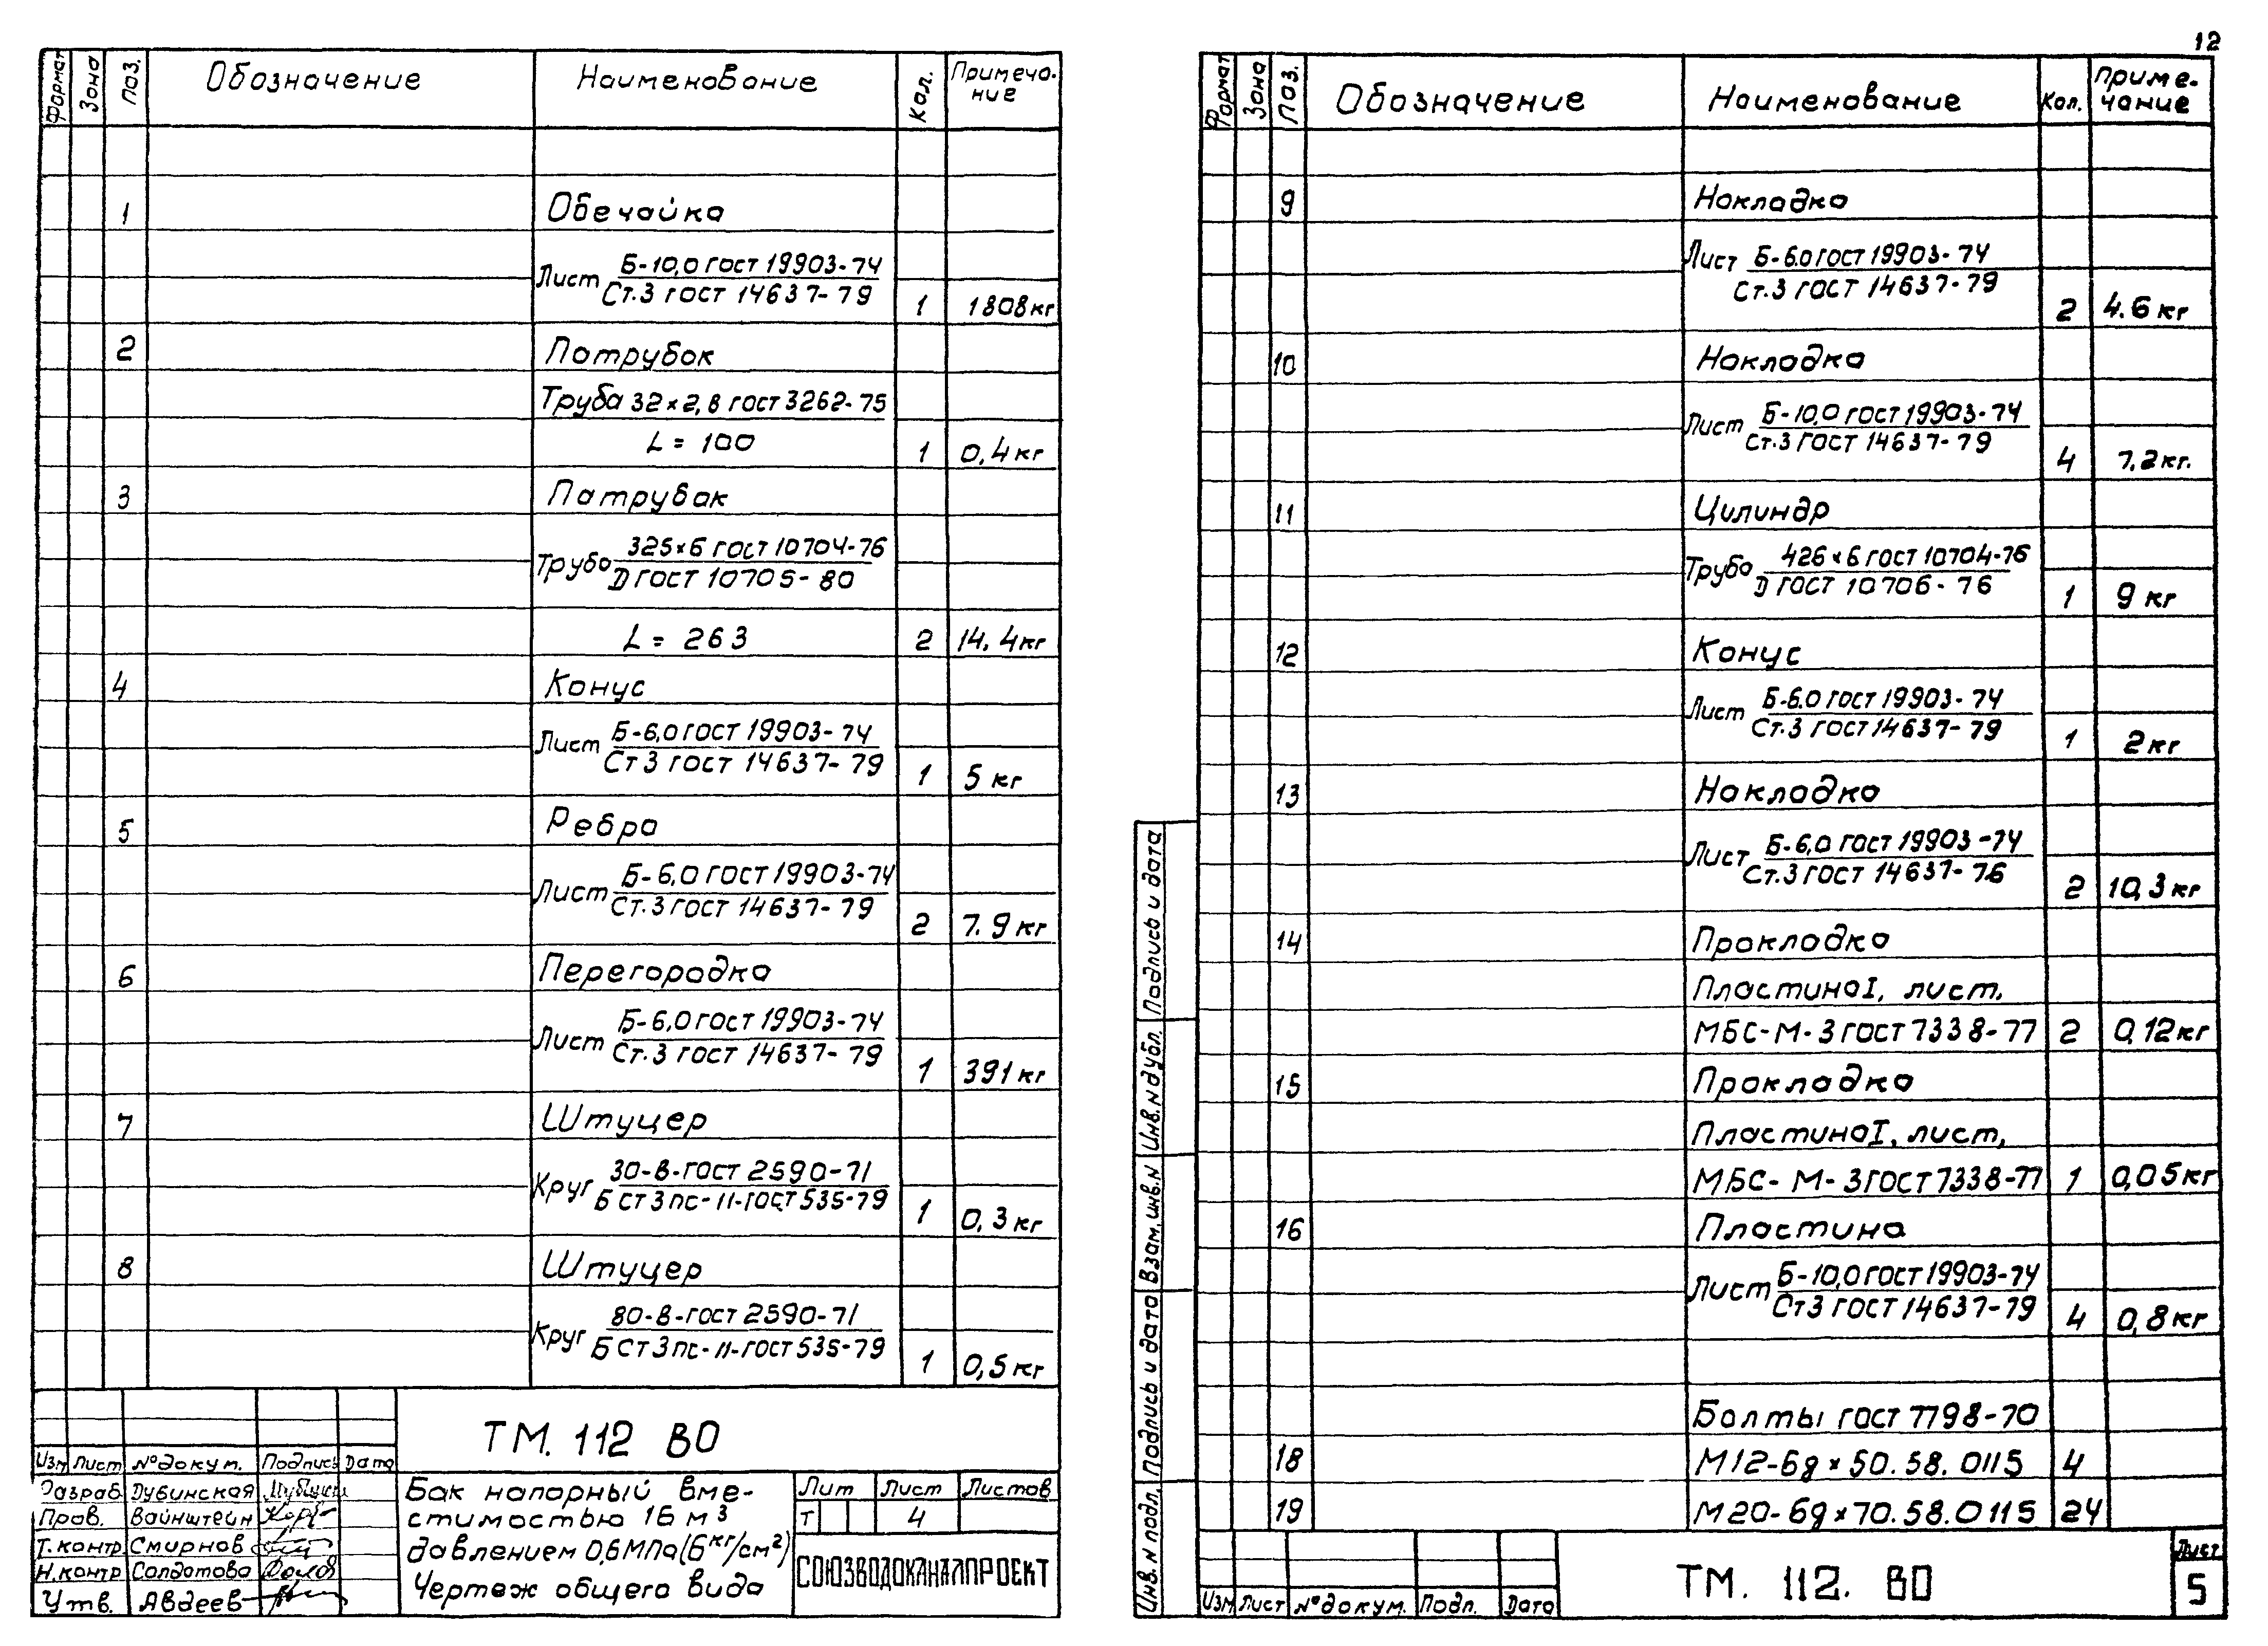 12
Формат Зона Поз. Обозначение Наименование Кол. Примеча-
ние
1 Обечайка
Лист Б-10,0 ГОСТ 19903-74
Ст.3 ГОСТ 14637-79 1 1808 кг
2 Патрубок
Труба 32×2,8 ГОСТ 3262-75
L = 100 1 0,4 кг
3 Патрубок
Труба 325×6 ГОСТ 10704-76
Д ГОСТ 10705-80
L = 263 2 14.4 кг
4 Конус
Лист Б-6,0 ГОСТ 19903-74
Ст 3 ГОСТ 14637-79 1 5 кг
5 Ребра
Лист Б-6,0 ГОСТ 19903-74
Ст.3 ГОСТ 14637-79 2 7.9 кг
6 Перегородка
Лист Б-6,0 ГОСТ 19903-74
Ст.3 ГОСТ 14637-79 1 391 кг
7 Штуцер
Круг 30-В-ГОСТ 2590-71
Б Ст 3 пс-II-ГОСТ 535-79 1 0,3 кг
8 Штуцер
Круг 80-В-ГОСТ 2590-71
Б Ст 3 пс-II-ГОСТ 535-79 1 0,5 кг
ТМ. 112 ВО
Изм Лист № докум. Подпись Дата
Разраб. Дубинская
Пров. Вайнштейн
Т.контр Смирнов
Н.контр Солдатова
Утв. Авдеев
Бак напорный вме-
стимостью 16 м³
давлением 0,6 МПа (6 кг/см²)
Чертеж общего вида
Лит Лист Листов
Т 4
СОЮЗВОДОКАНАЛПРОЕКТ
Формат Зона Поз. Обозначение Наименование Кол. Приме-
чание
9 Накладка
Лист Б-6.0 ГОСТ 19903-74
Ст.3 ГОСТ 14637-79 2 4.6 кг
10 Накладка
Лист Б-10,0 ГОСТ 19903-74
Ст.3 ГОСТ 14637-79 4 7,2 кг.
11 Цилиндр
Труба 426×6 ГОСТ 10704-76
Д ГОСТ 10706-76 1 9 кг
12 Конус
Лист Б-6.0 ГОСТ 19903-74
Ст.3 ГОСТ 14637-79 1 2 кг
13 Накладка
Лист Б-6,0 ГОСТ 19903-74
Ст.3 ГОСТ 14637-76 2 10,3 кг
14 Прокладка
Пластина I, лист,
МБС-М-3 ГОСТ 7338-77 2 0,12 кг
15 Прокладка
Пластина I, лист,
МБС-М-3 ГОСТ 7338-77 1 0,05 кг
16 Пластина
Лист Б-10,0 ГОСТ 19903-74
Ст 3 ГОСТ 14637-79 4 0,8 кг
Болты ГОСТ 7798-70
18 М12-6g×50.58.0115 4
19 М20-6g×70.58.0115 24
Инв. N подл. Подпись и дата Взам. инв. N Инв. N дубл. Подпись и дата
Изм Лист № докум. Подп. Дата
ТМ. 112. ВО
Лист
5